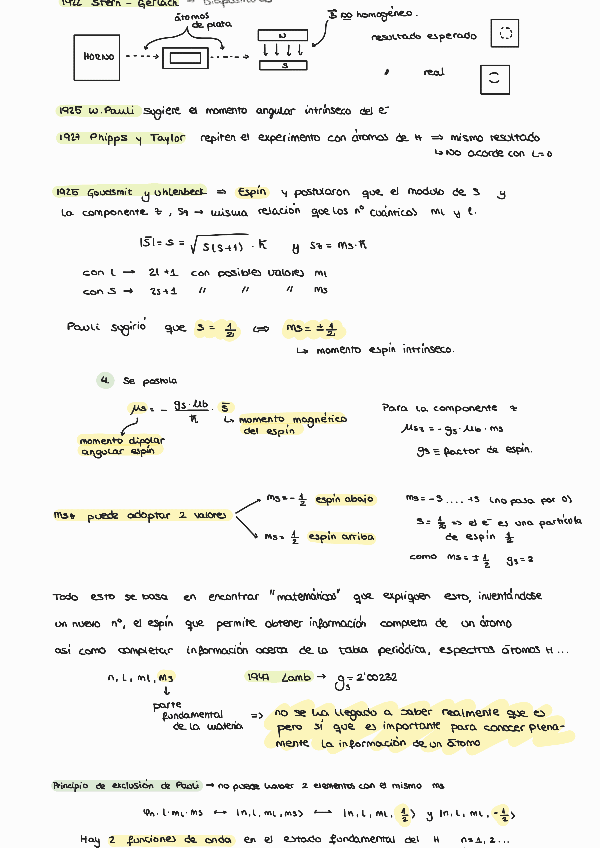 1922 Stern - Gerlach → Dispositivo
átomos
de plata
B no homogéneo.
HORNO
N
S
resultado esperado
" real
1925 W. Pauli sugiere el momento angular intrínseco del e⁻
1927 Phipps y Taylor repiten el experimento con átomos de H ⇒ mismo resultado
↳ No acorde con L=0
1925 Goudsmit y Uhlenbeck ⇒ Espín y postularon que el modulo de S y
la componente z, Sz → misma relación que los nº cuánticos ml y l.
|S̄| = S = √(s(s+1)) · ħ y Sz = ms·ħ
con l → 2l+1 con posibles valores ml
con s → 2s+1 " " " ms
Pauli sugirió que s = 1/2 ⇔ ms = ± 1/2
↳ momento espín intrínseco.
4. Se postula
μs = - gs·μb/ħ · S̄
↳ momento magnético
del espín
momento dipolar
angular espín
Para la componente z
μsz = -gs·μb·ms
gs ≡ factor de espín.
msz puede adoptar 2 valores
ms = -1/2 espín abajo
ms = 1/2 espín arriba
ms = -s .... +s (no pasa por 0)
s = 1/2 ⇒ el e⁻ es una partícula
de espín 1/2
como ms = ± 1/2 gs = 2
Todo esto se basa en encontrar "matemáticas" que expliquen esto, inventándose
un nuevo nº, el espín que permite obtener información completa de un átomo
así como completar información acerca de la tabla periódica, espectros átomos H ...
n, l, ml, ms
↓
parte
fundamental
de la materia
1947 Lamb → gs = 2'00232
⇒ no se ha llegado a saber realmente que es
pero sí que es importante para conocer plena-
mente la información de un átomo
Principio de exclusión de Pauli → no puede haber 2 elementos con el mismo ms
φn·l·ml·ms ↔ |n, l, ml, ms⟩ ↔ |n, l, ml, 1/2⟩ y |n, l, ml, -1/2⟩
Hay 2 funciones de onda en el estado fundamental del H n=1, 2...